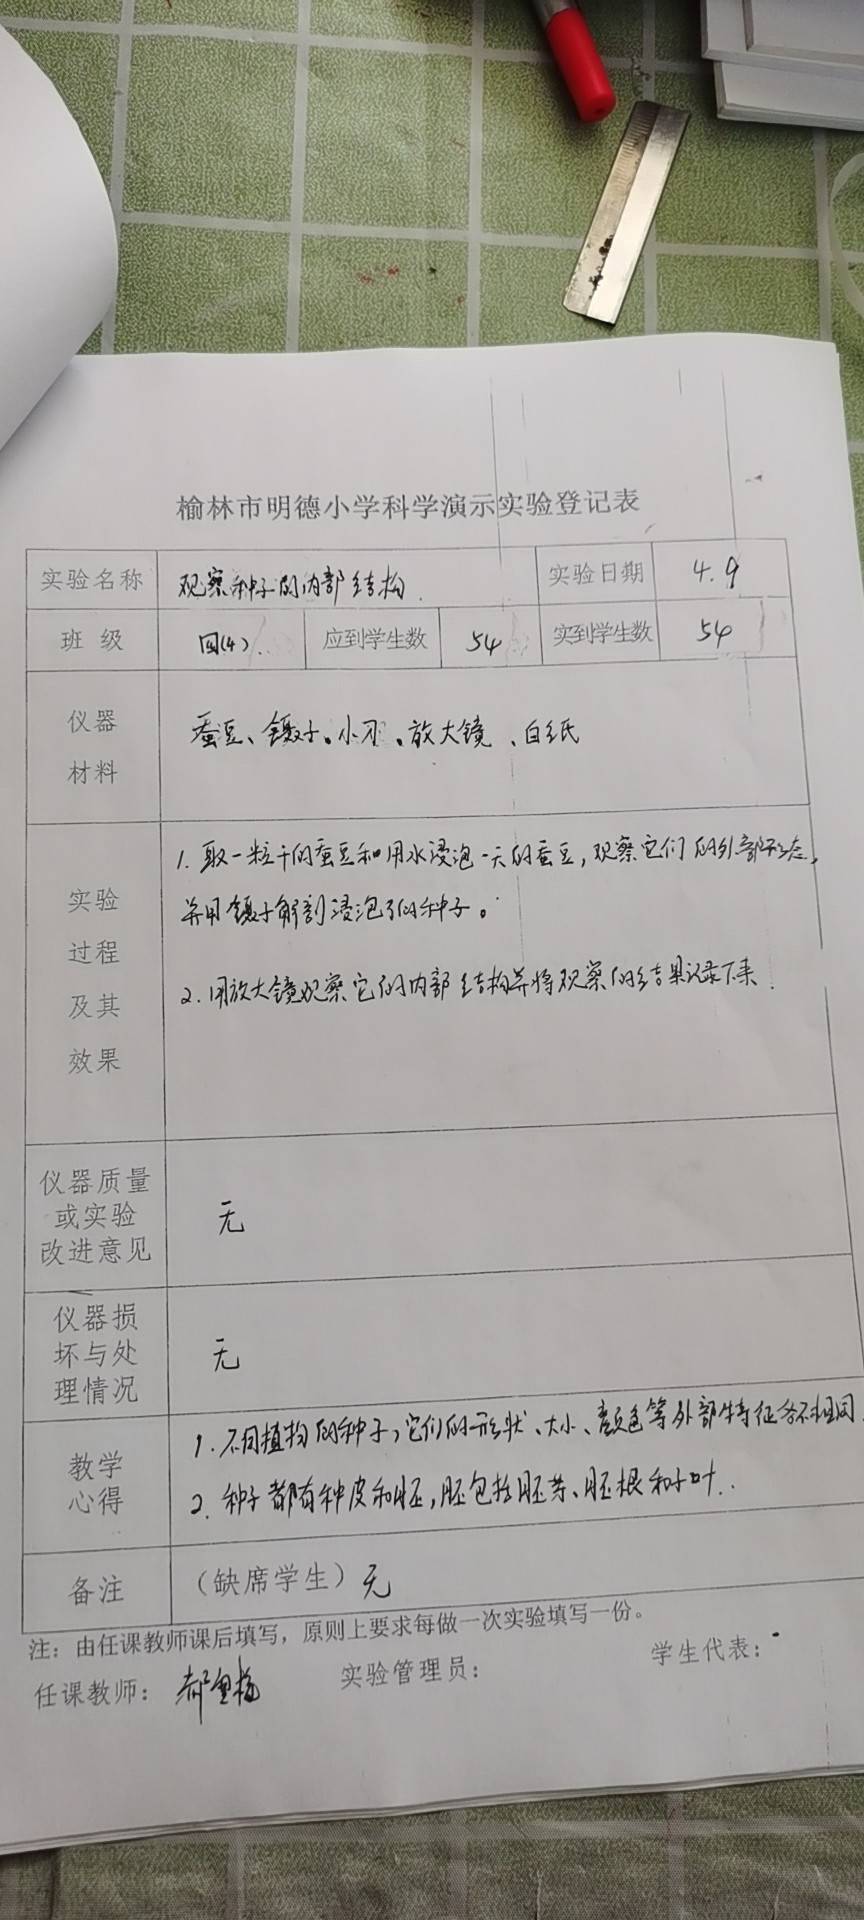 榆林市明德小学科学演示实验登记表
实验名称 观察种子的内部结构. 实验日期 4.9
班级 四(4). 应到学生数 54 实到学生数 54
仪器
材料
蚕豆、镊子、小刀、放大镜、白纸
实验
过程
及其
效果
1. 取一粒干的蚕豆和用水浸泡一天的蚕豆,观察它们的外部形态,
并用镊子解剖浸泡了的种子。
2. 用放大镜观察它的内部结构并将观察的结果记录下来.
仪器质量
或实验
改进意见
无
仪器损
坏与处
理情况
无
教学
心得
1. 不同植物的种子,它们的形状、大小、颜色等外部特征各不相同.
2. 种子都有种皮和胚,胚包括胚芽、胚根和子叶..
备注 (缺席学生)无
注:由任课教师课后填写,原则上要求每做一次实验填写一份。
任课教师: 郝 梅 实验管理员: 学生代表: